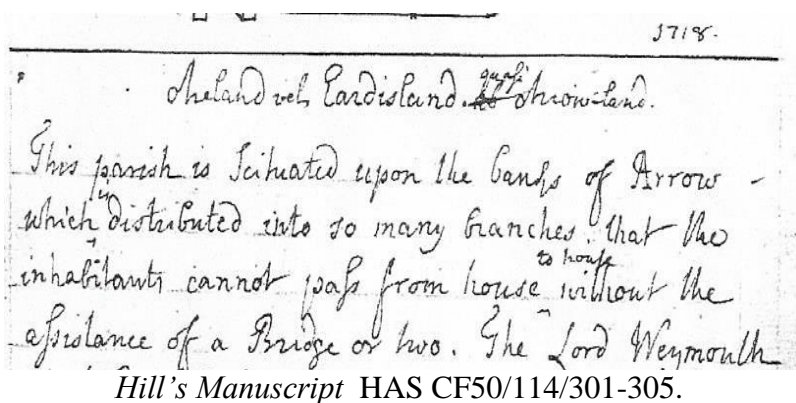 1718.
Areland vel Eardisland. quasi Arrow-land.
This parish is Scituated upon the banks of Arrow -
which is distributed into so many branches, that the
inhabitants cannot paſs from house to houſe without the
aſsistance of a Bridge or two. The Lord Weymouth
Hill's Manuscript HAS CF50/114/301-305.